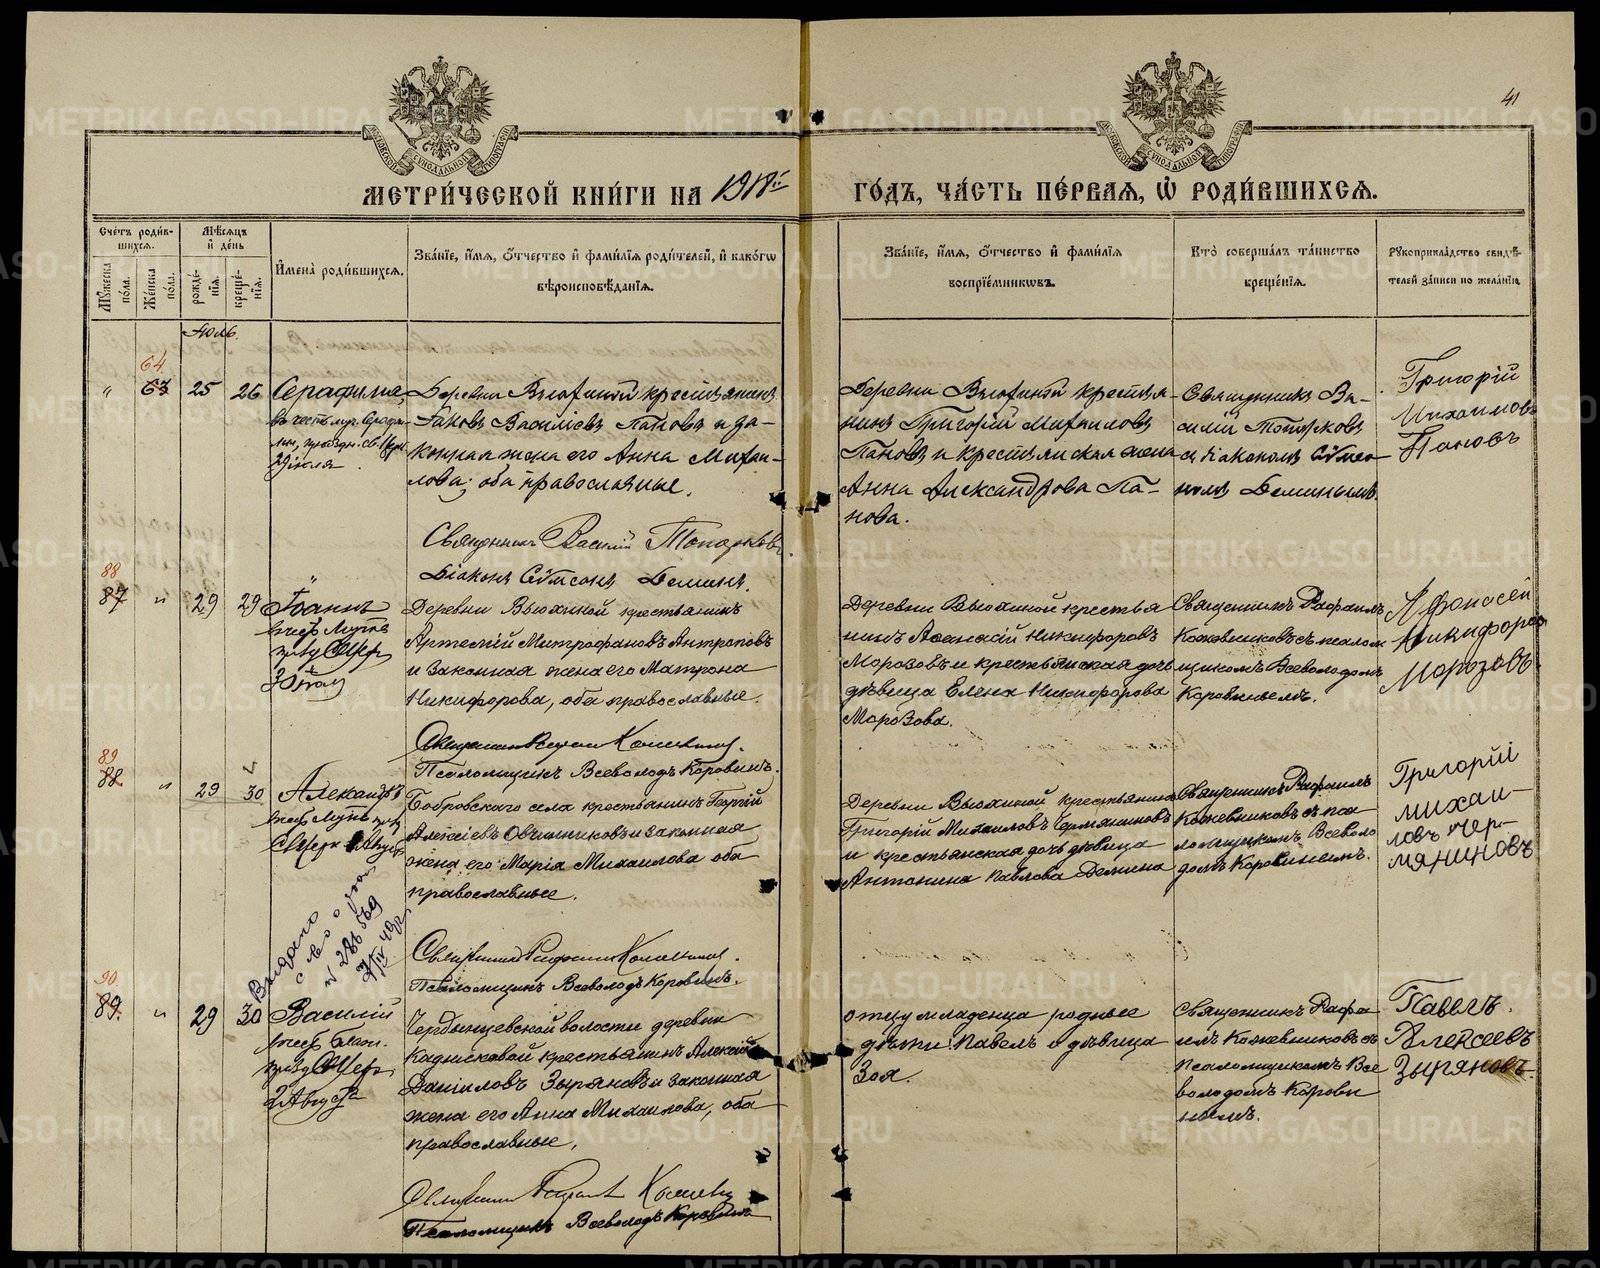 41
МЕТРИ́ЧЕСКОЙ КНИ́ГИ НА 191
ГО́ДЪ, ЧА́СТЬ ПЕ́РВАЯ, Ѡ РОДИ́ВШИХСЯ.
Сче́тъ роди́вшихся.
Му́жеска по́ла.
Же́нска по́ла.
Мѣ́сяцъ и де́нь
рожде́нія.
креще́нія.
И́мена роди́вшихся.
Зва́ніе, и́мя, о́тчество и фами́лія роди́телей, и како́гѡ
вѣроисповѣ́данія.
Зва́ніе, и́мя, о́тчество и фами́лія
воспріе́мниковъ.
Кто̀ соверша́лъ та́инство
креще́нія.
Рукоприкла́дство свидѣ́-
телей за́писи по жела́нію.
Іюль.
64
" 63 25 26
Серафима,
29 іюля
Деревни Вьюхиной крестьянинъ
Іаковъ Василіевъ Пановъ и за-
конная жена его Анна Михаи-
лова; оба православные.
Священникъ Василій Топорковъ.
Діаконъ Сѵмеонъ Деминъ.
Деревни Вьюхиной крестья-
нинъ Григорій Михаиловъ
Пановъ и крестьянская жена
Анна Александрова Па-
нова.
Священникъ Ва-
силій Топорковъ
съ діакономъ Сѵмео-
номъ Деминымъ.
Григорій
Михаиловъ
Пановъ
88
87 " 29 29
Іоаннъ
Деревни Вьюхиной крестьянинъ
Артемій Митрофановъ Антроповъ
и законная жена его Матрона
Никифорова, оба православные.
Псаломщикъ Всеволодъ Коровинъ.
Деревни Вьюхиной крестья
нинъ Аѳанасій Никифоровъ
Морозовъ и крестьянская дочь
дѣвица Елена Никифорова
Морозова.
Священникъ Рафаилъ
Кожевниковъ съ псалом
щикомъ Всеволодомъ
Коровинымъ.
Афонасей
Никифоровъ
Морозовъ
89
88 " 29 30
Александръ
Бобровскаго села крестьянинъ Георгій
Алексіевъ Овчинниковъ и законная
жена его Марія Михаилова оба
православные.
Псаломщикъ Всеволодъ Коровинъ.
Деревни Вьюхиной крестьянинъ
Григорій Михаиловъ Чермяниновъ
и крестьянская дочь дѣвица
Антонина Павлова Демина
Священникъ Рафаилъ
Кожевниковъ съ пса
ломщикомъ Всеволо
домъ Коровинымъ.
Григорій
михаи-
ловъ Чер-
мяниновъ
Выдано
№ 286569
90
89. " 29 30
Василій
2 Августа
деревни
крестьянинъ Алексій
Даніиловъ Зыряновъ и законная
жена его Анна Михаилова, оба
православные.
Псаломщикъ Всеволодъ Коровинъ
отцу младенца родные
дѣти: Павелъ и дѣвица
Зоя.
Священникъ Рафа
илъ Кожевниковъ съ
псаломщикомъ Все
володомъ Корови
нымъ.
Павелъ
Алексеевъ
Зыряновъ
METRIKI.GASO-URAL.RU